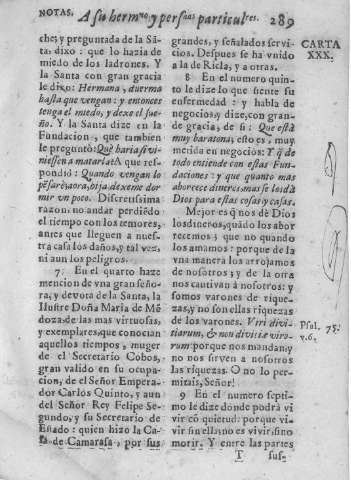 NOTAS. A su hermno y persnas particulres. 289
che; y preguntada de la Sã-
ta, dixo: que lo hazia de
miedo de los ladrones. Y
la Santa con gran gracia
le dixo: Hermana, duerma
hasta que vengan: y entonces
tenga el miedo, y dexe el sue-
ño. Y la Santa dize en la
Fundacion, que tambien
le preguntò: Què haria si vi-
niessen a matarla? A que res-
pondiò: Quando vengan lo
pẽsarè; aora, hija dexeme dor-
mir vn poco. Discretissima
razon: no andar perdiẽdo
el tiempo con los temores,
antes que lleguen a nues-
tra casa los daños, y tal vez,
ni aun los peligros.
7. En el quarto haze
mencion de vna gran seño-
ra, y devota de la Santa, la
Ilustre Doña Maria de Mẽ-
doza: de las mas virtuosas,
y exemplares, que conocian
aquellos tiempos, muger
de el Secretario Cobos,
gran valido en su ocupa-
cion, de el Señor Empera-
dor Carlos Quinto, y aun
del Señor Rey Felipe Se-
gundo, y su Secretario de
Estado: quien hizo la Ca-
sa de Camarasa, por sus
grandes, y señalados servi-
cios. Despues se ha vnido
a la de Ricla, y a otras.
8 En el numero quin-
to le dize lo que siente su
enfermedad: y habla de
negocios, y dize, con gran-
de gracia, de si: Que està
muy baratona; esto es, muy
metida en negocios: Y q̃ de
todo entiende con estas Fun-
daciones: y que quanto mas
aborrece dineros, mas se los dà
Dios para estas cosas y casas.
Mejor es q̃ nos dè Dios
los dineros, quãdo los abor-
recemos; que no quando
los amamos: porque de la
vna manera los arrojamos
de nosotros; y de la otra
nos cautivan à nosotros: y
somos varones de rique-
zas, y no son ellas riquezas
de los varones. Viri divi-
tiarum, & non divitiæ viro-
rum: porque nos mandan, y
no nos sirven a nosotros
las riquezas. O no lo per-
mitais, Señor!
9 En el numero septi-
mo le dize donde podrà vi
vir cõ quietud: porque vi-
vir sin ella, no es vivir, sino
morir. Y entre las partes
T sus-
CARTA
XXX.
Psal. 75.
v.6.